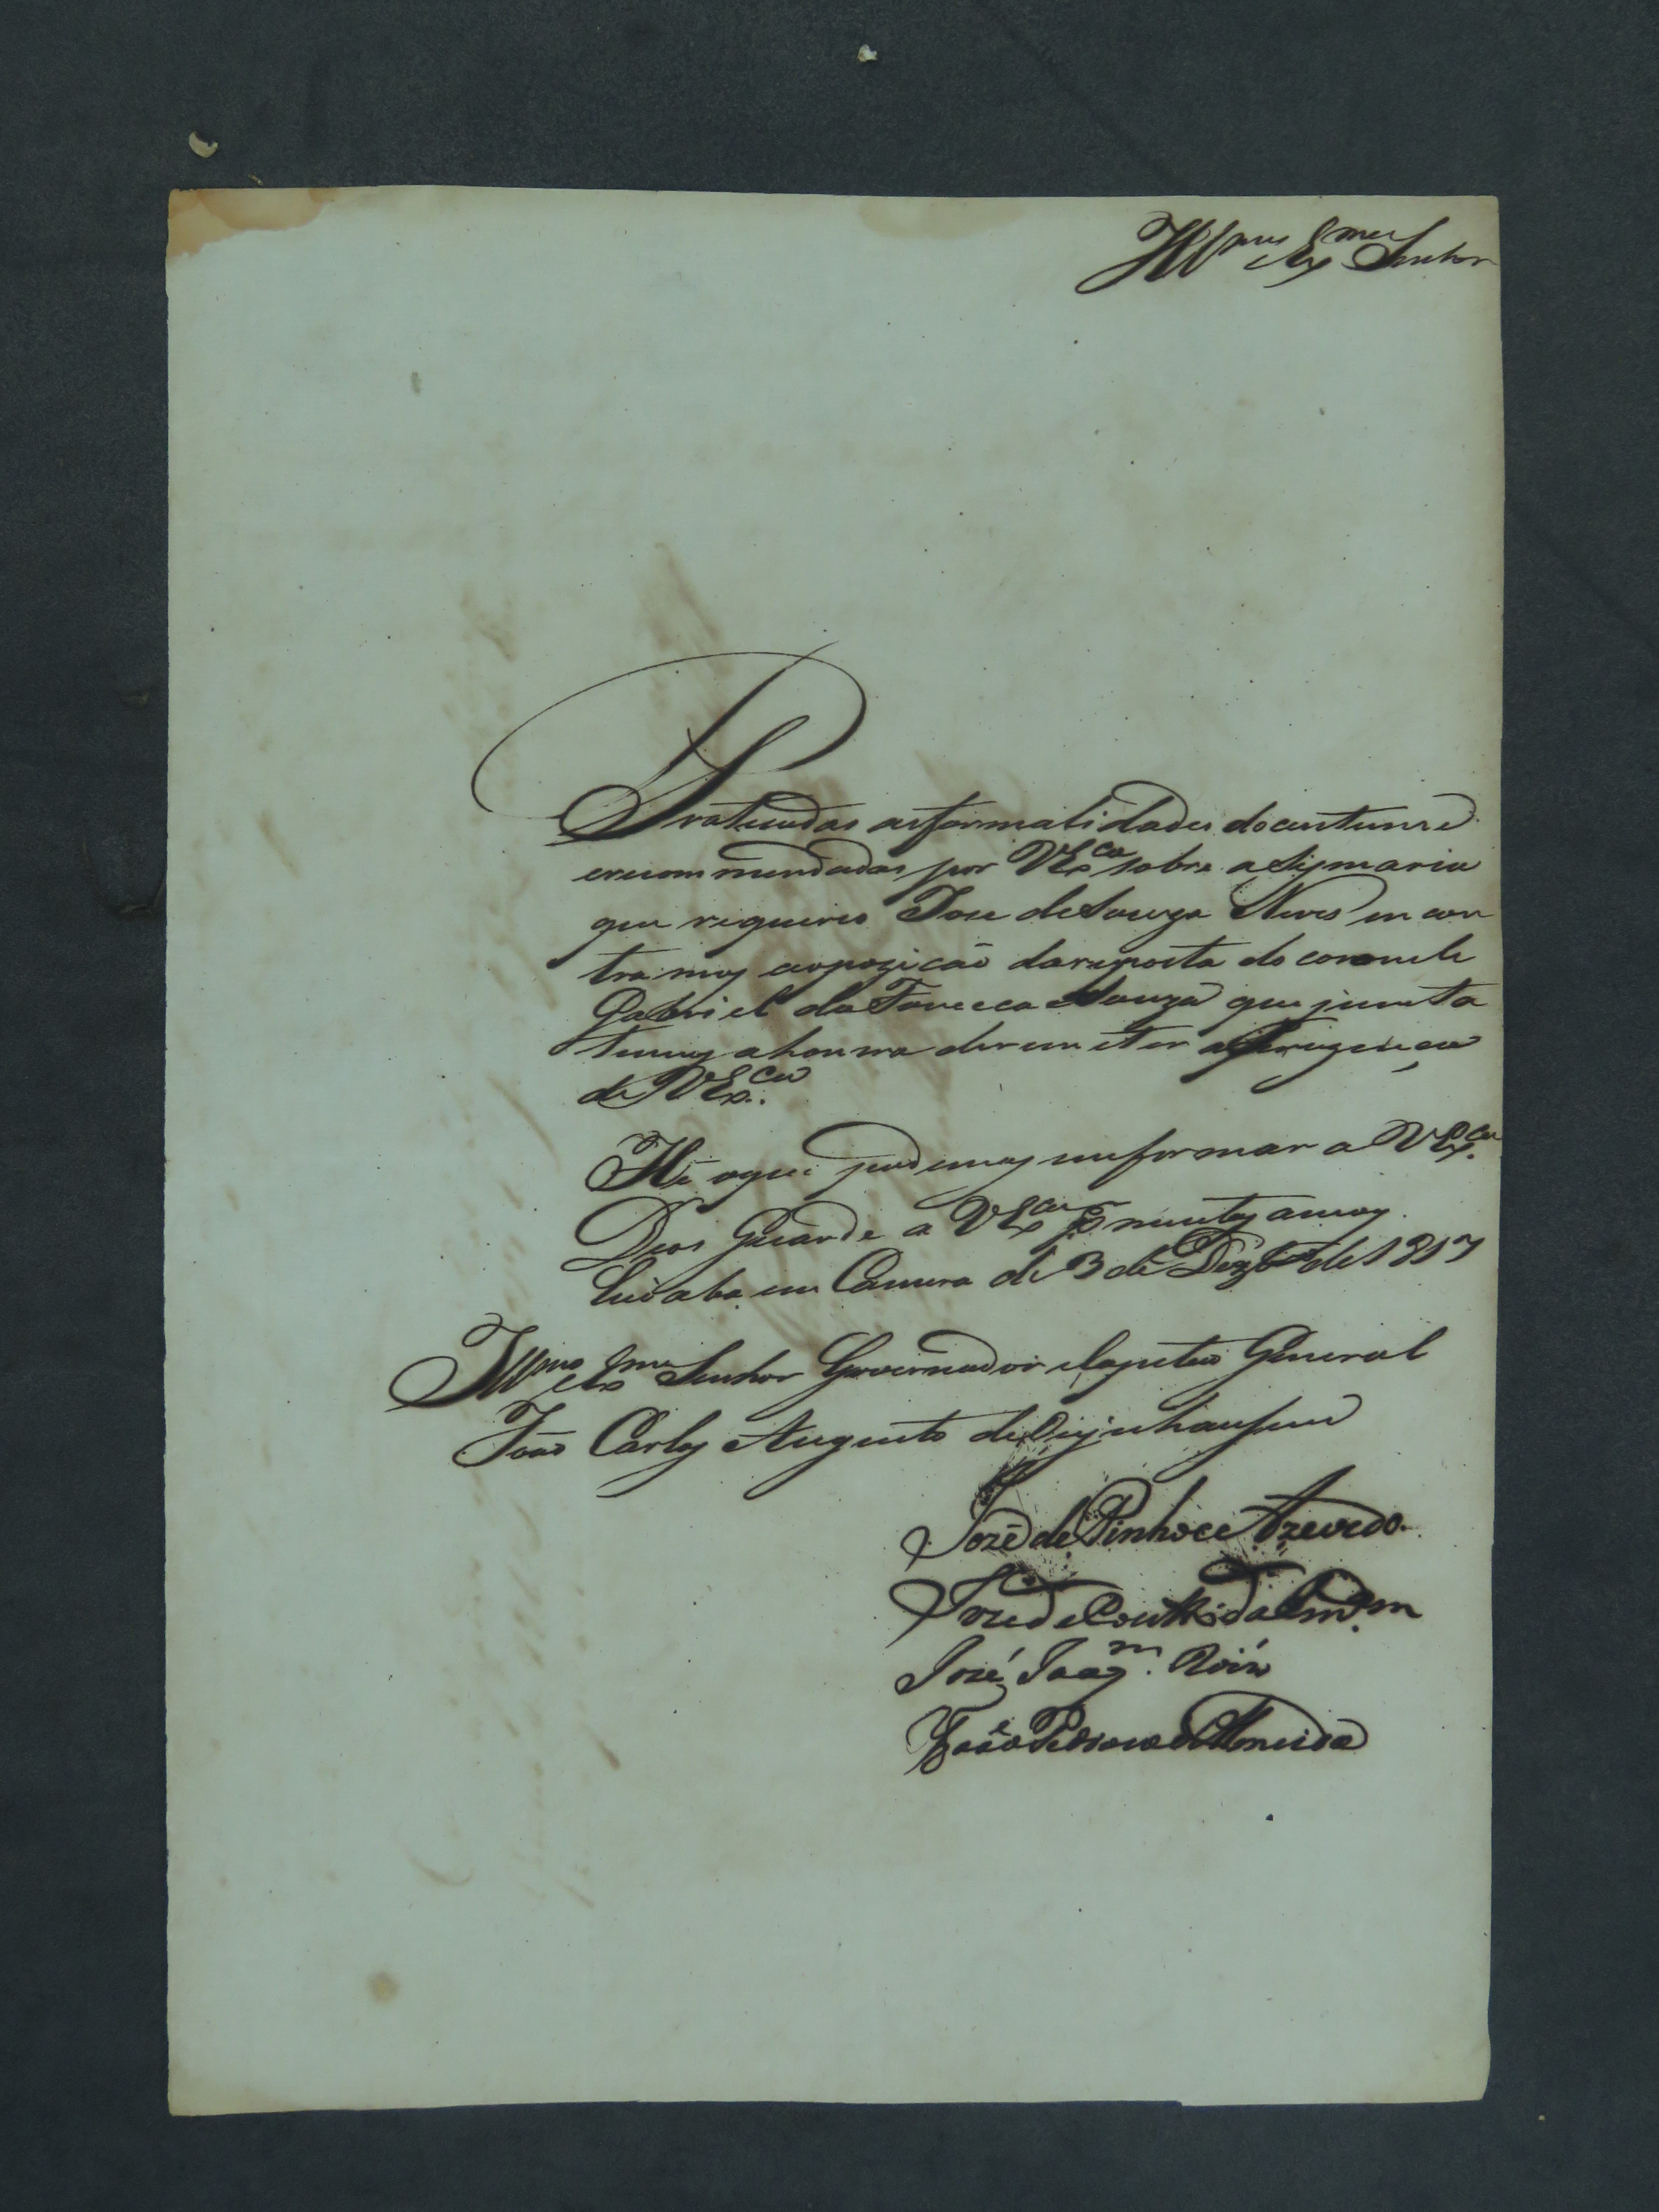 Ill^mo e Ex^mo Senhor
Praticadas asformalidades docustume
erecommendadas por VEx^ca sobre a Sismaria
que requereo Jose deSouza Neves encon
tramos aopozicaõ dareposta do coronele
Gabriel daFonceca eSouza que junta
temos ahonrra deremeter aPrezença
de VEx.^ca
Hé oque podemos emformar a VEx.^ca
Deos Guarde a VEx^ca por muntos annos
Cuiaba em Camera de 3 de Dezbr^o de 1817
Ill^mo e Ex^mo Senhor Governador eCapitaõ General
Joaõ Carlos Augusto deOeijnhausen
Jozé de Pinho e Azevedo.
José Joaq^m.
Joaõ Pedrozo deAlmeida